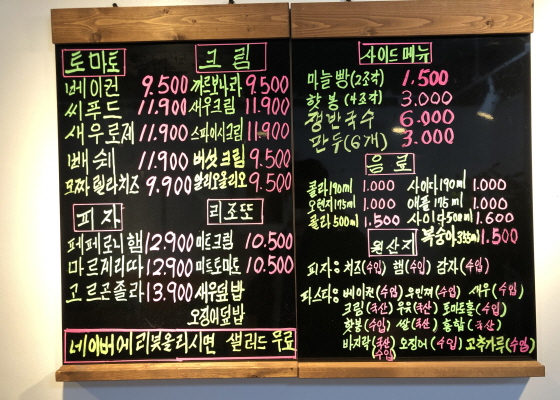 토마토
베이컨 9.500
씨푸드 11.900
새우로제 11.900
뽀쇄 11.900
모짜렐라치즈 9.900
크림
까르보나라 9.500
새우크림 11.900
스파이시크림 11.900
버섯크림 9.500
알리오올리오 9.500
피자
페페로니햄 12.900
마르게리따 12.900
고르곤졸라 13.900
리조또
미트크림 10.500
미트토마토 10.500
새우덮밥
오징어덮밥
네이버에 리뷰올리시면 샐러드 무료
사이드메뉴
마늘빵(2조각) 1.500
핫봉(4조각) 3.000
쟁반국수 6.000
만두(6개) 3.000
음료
콜라190ml 1.000 사이다190ml 1.000
오렌지175ml 1.000 애플175ml 1.000
콜라500ml 1.500 사이다500ml 1.600
복숭아355ml 1.500
원산지
피자: 치즈(수입) 햄(수입) 감자(수입)
파스타: 베이컨(수입) 우민찌(수입) 새우(수입)
크림(국산) 우유(국산) 토마토홀(수입)
핫봉(수입) 쌀(국산) 홍합(국산)
바지락(국산 수입) 오징어(수입) 고추가루(수입)